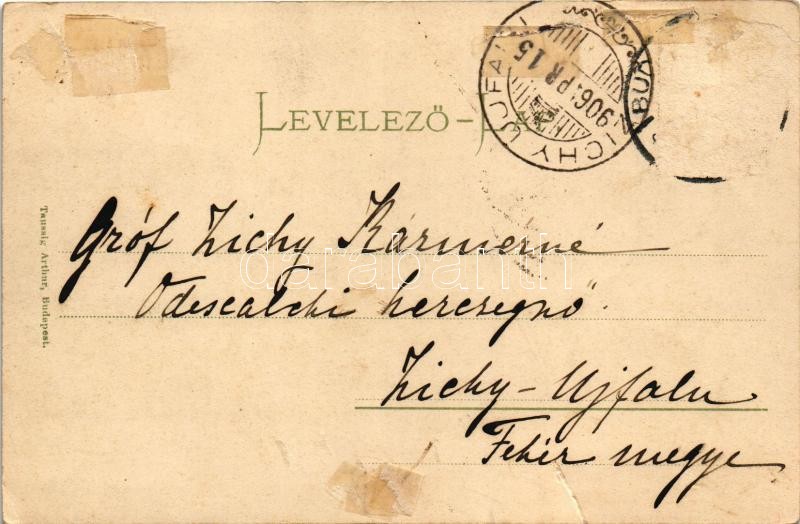 LEVELEZŐ-LAP
ZICHY UJFALU
906 APR 15
BUD
Gróf Zichy Kázmérné
Odescalchi hercegnő.
Zichy-Ujfalu
Fehér megye
Taussig Arthur, Budapest.
darabanth